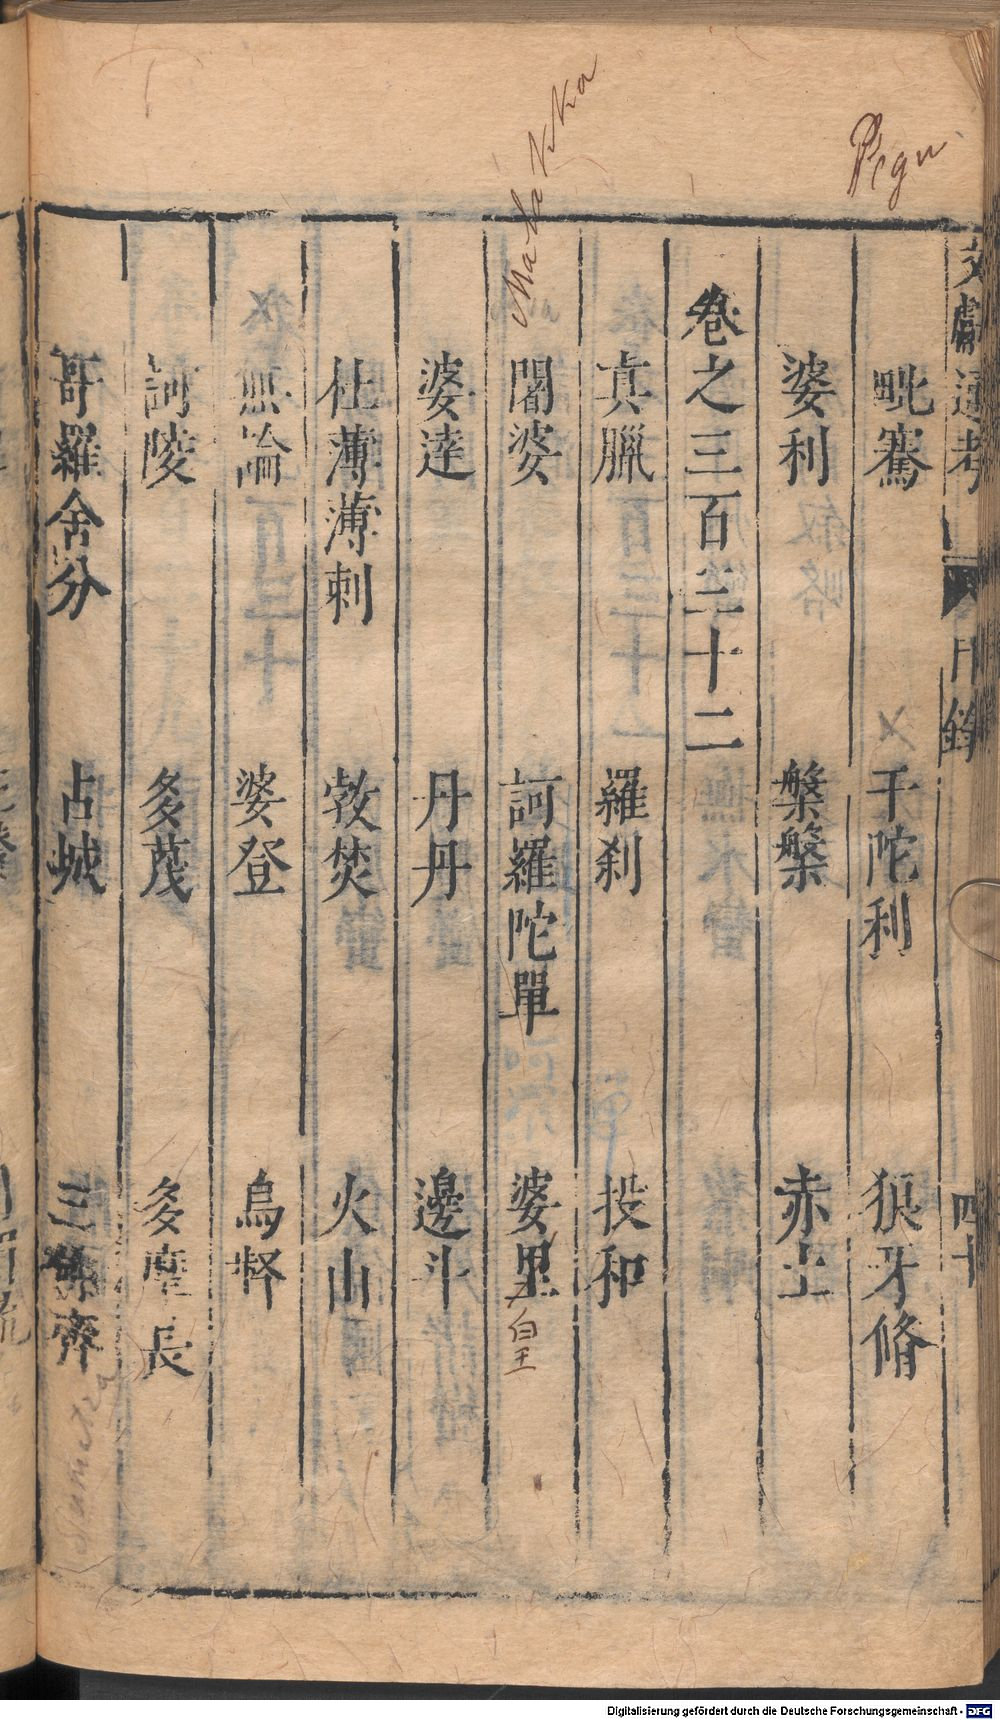 Pegu
Malakka
文獻通考 目錄 四十
毗騫 干陀利 狼牙脩
婆利 槃槃 赤土
卷之三百三十二
真臘 羅刹 投和
闍婆 訶羅陀單 婆里
皇
婆達 丹丹 邊斗
杜薄薄刺 敦焚 火山
無論 婆登 烏笒
訶陵 多茂 多摩長
哥羅舍分 占城 三佛齊
Sumatra
Digitalisierung gefördert durch die Deutsche Forschungsgemeinschaft - DFG